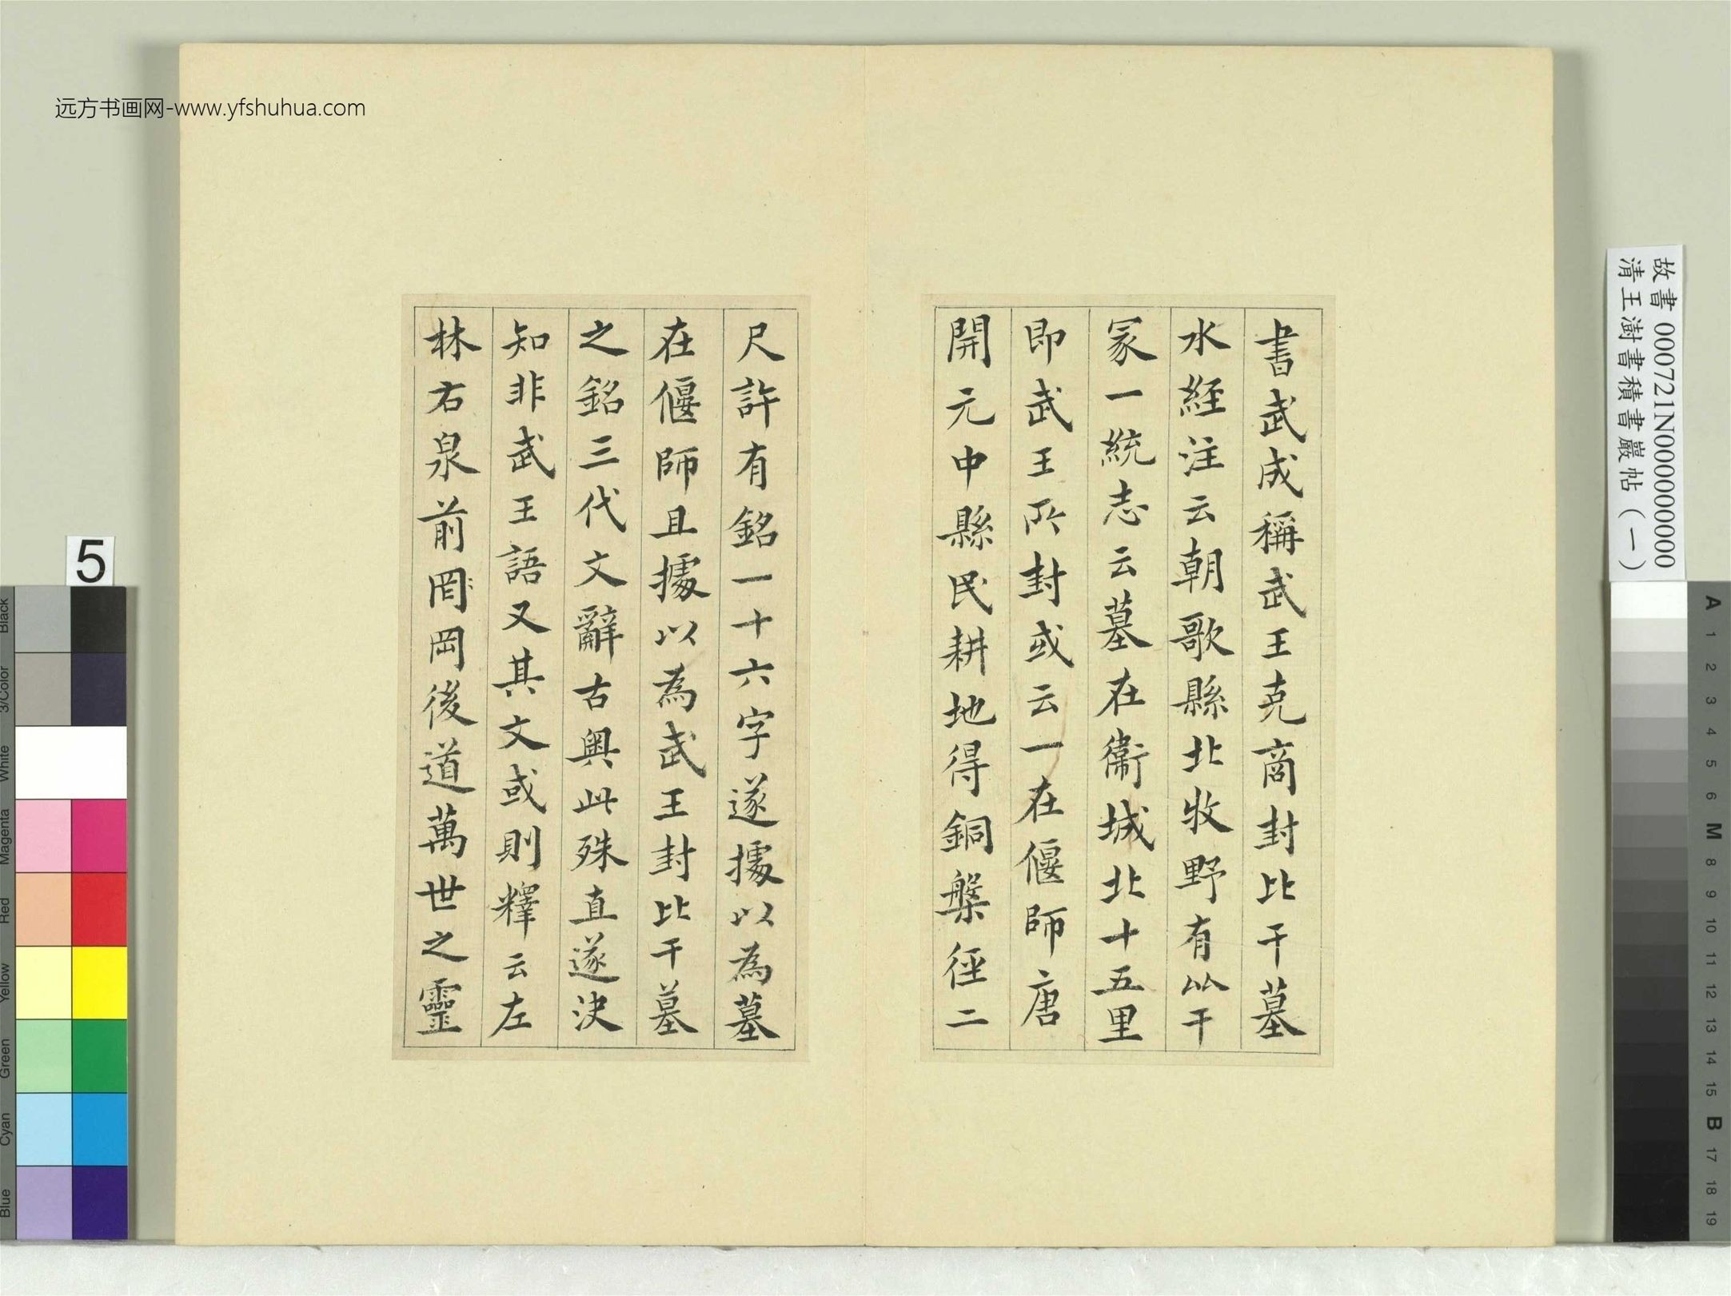 书画网-www.yfshuhua.com
書武成稱武王克商封比干墓
水經注云朝歌縣北牧野有比干
冢一統志云墓在衞城北十五里
即武王所封或云一在偃師唐
開元中縣民耕地得銅槃徑二
尺許有銘一十六字遂據以為墓
在偃師且據以為武王封比干墓
之銘三代文辭古奧此殊直遂決
知非武王語又其文或則釋云左
林右泉前罔岡後道萬世之靈
故書 000721N000000000
清王澍書積書巖帖（一）
5
Black
3/Color
White
Magenta
Red
Yellow
Green
Cyan
Blue
A
1
2
3
4
5
6
M
8
9
10
11
12
13
14
15
B
17
18
19